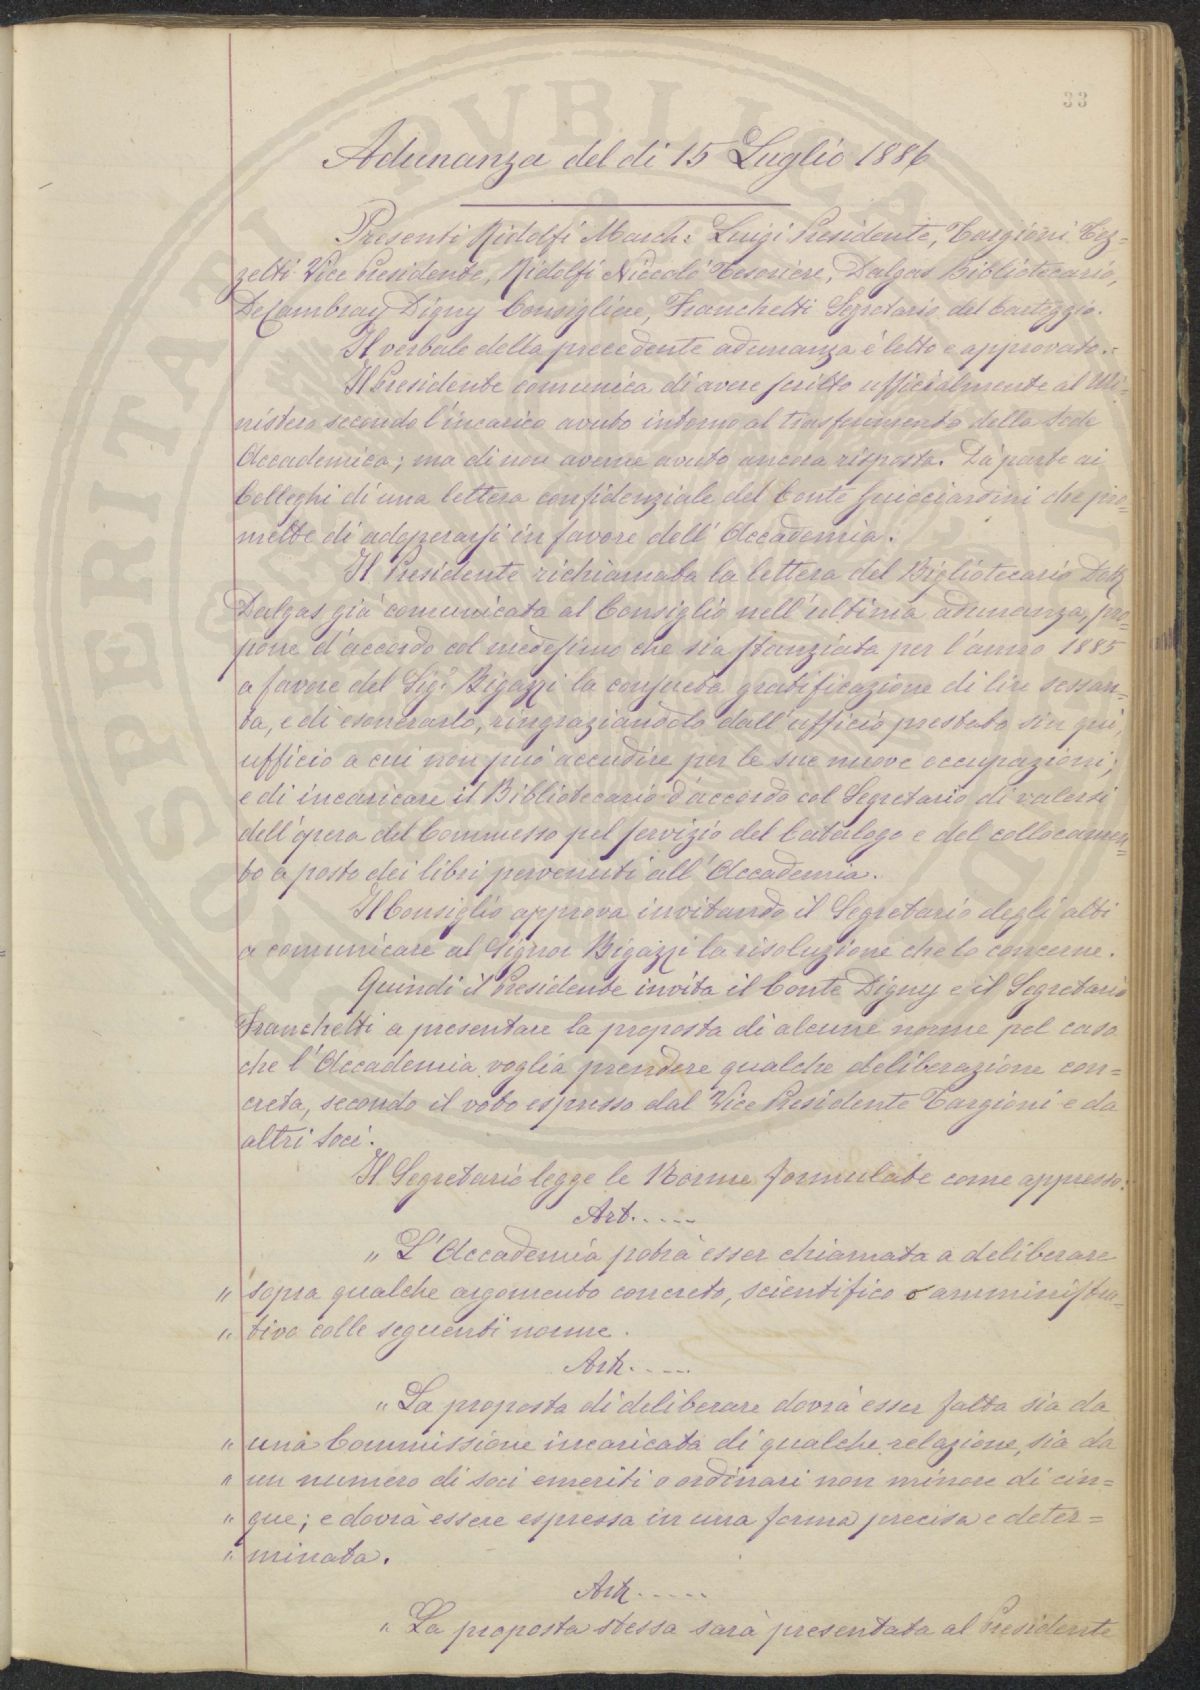 33
Adunanza del di 15 Luglio 1886
Presenti Ridolfi March: Luigi Presidente, Targioni Toz=
zelti Vice Presidente, Ridolfi Niccolò Tesoriere, Dalgas Bibliotecario,
De Cambray Digny Consigliere, Franchetti Segretario del Carteggio.
Il verbale della precedente adunanza è letto e approvato.=
Il Presidente comunica di avere scritto ufficialmente al Mi=
nistero secondo l'incarico avuto intorno al trasferimento della Sede
Accademica; ma di non averne avuto ancora risposta. Dà parte ai
Colleghi di una lettera confidenziale del Conte Guicciardini che pro=
mette di adoperarsi in favore dell'Accademia.
Il Presidente richiamata la lettera del Bigliotecario Dott
Dalgas già comunicata al Consiglio nell'ultima adunanza, pro=
pone d'accordo col medesimo che sia stanziata per l'anno 1885
a favore del Sig.r Bigazzi la consueta gratificazione di lire sessan=
ta, e di esonerarlo, ringraziandolo dall'ufficio prestato sin quì,
ufficio a cui non può accudire per le sue nuove occupazioni;
e di incaricare il Bibliotecario d'accordo col Segretario di valersi
dell'opera del Commesso pel servizio del Catalogo e del collocamen=
to a posto dei libri pervenuti all'Accademia.
Il Consiglio approva invitando il Segretario degli atti
a comunicare al Signor Bigazzi la risoluzione che lo concerne.
Quindi il Presidente invita il Conte Digny e il Segretario
Franchetti a presentare la proposta di alcune norme pel caso
che l'Accademia voglia prendere qualche deliberazione con=
creta, secondo il voto espresso dal Vice Presidente Targioni e da
altri Soci.
Il Segretario legge le Norme formulate come appresso:
Art.....
" L'Accademia potrà esser chiamata a deliberare
" sopra qualche argomento concreto, scientifico o amministra=
" tivo colle seguenti norme.
Art.....
" La proposta di deliberare dovrà esser fatta sia da
" una Commissione incaricata di qualche relazione, sia da
" un numero di soci emeriti o ordinari non minore di cin=
" que; e dovrà essere espressa in una forma precisa e deter=
" minata.
Art.....
" La proposta stessa sarà presentata al Presidente